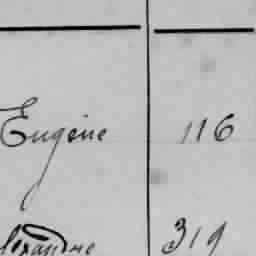 Eugène 116
lexandre 319